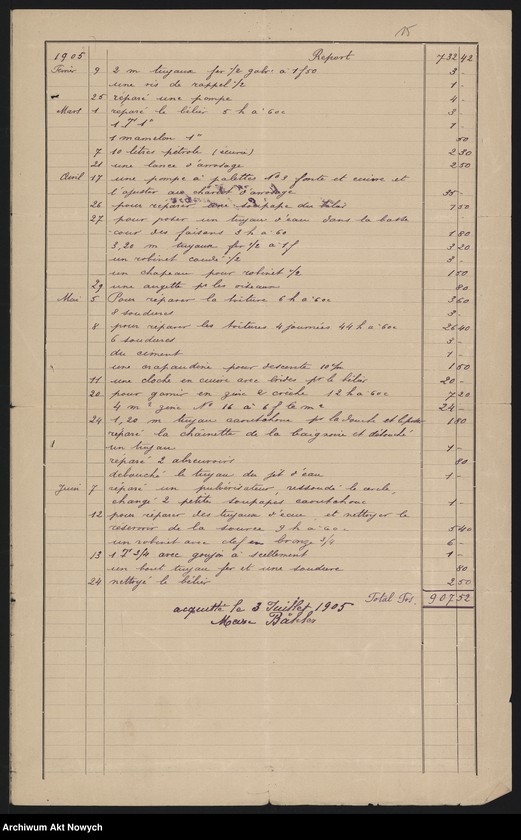 15
1905 Report 732 42
Février 9 2 m tuyaux fer 1/2 galv. à 1f50 3 -
une vis de rappel 1/2 1 -
25 réparé une pompe 4 -
Mars 1 réparé le bélier 5 h à 60c 3 -
1 T 1" 1 -
1 mamelon 1" 50
7 10 litres pétrole (écurie) 2 50
21 une lance d'arrosage 2 50
Avril 17 une pompe à palettes No 3 fonte et cuivre et
l'ajuster au chariot d'arrosage 35 -
26 pour réparer une soupape du bélier 1 50
27 pour poser un tuyau d'eau dans la basse
cour des faisans 3 h à 60 1 80
3,20 m tuyaux fer 1/2 à 1f 3 20
un robinet coudé 1/2 3 -
un chapeau pour robinet 1/2 1 50
29 une augette pr les oiseaux 80
Mai 5 Pour réparer la toiture 6 h à 60c 3 60
8 soudures 3 -
8 pour réparer les toitures 4 journées 44 h à 60c 26 40
6 soudures 3 -
du ciment 1 -
une crapaudine pour descente 10 c/m 1 50
11 une cloche en cuivre avec brides pr le bélier 20 -
20 pour garnir en zinc 2 crèche 12 h à 60c 7 20
4 m2 zinc No 16 à 6f le m2 24 -
24 1,20 m tuyau caoutchouc pr la douche et 1 80
réparé la chaînette de la baignoire et débouché
un tuyau 1 -
réparé 2 abreuvoirs 80
débouché le tuyau du jet d'eau 1 -
Juin 7 réparé un pulvérisateur, ressoudé le cercle,
changé 2 petites soupapes caoutchouc 1 -
12 pour réparer des tuyaux d'eau et nettoyer le
réservoir de la source 9 h à 60c 5 40
un robinet avec clef en bronze 3/4 6 -
13 1 T 3/4 avec goujon à scellement 1 -
un bout tuyau fer et une soudure 80
24 nettoyé le bélier 2 50
Total Frs. 907 52
acquitté le 3 Juillet 1905
Marc
Archiwum Akt Nowych